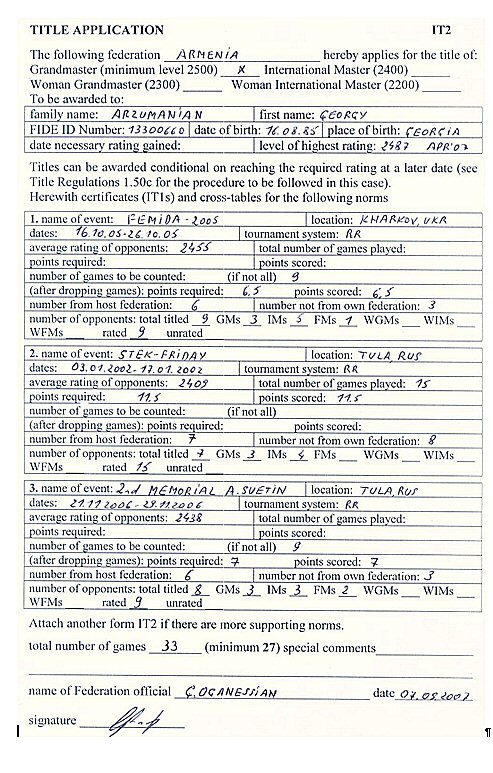 TITLE APPLICATION IT2
The following federation ARMENIA hereby applies for the title of:
Grandmaster (minimum level 2500) X International Master (2400)
Woman Grandmaster (2300) Woman International Master (2200)
To be awarded to:
family name: ARZUMANIAN first name: GEORGY
FIDE ID Number: 13300660 date of birth: 16.08.85 place of birth: GEORGIA
date necessary rating gained: level of highest rating: 2487 APR'07
Titles can be awarded conditional on reaching the required rating at a later date (see
Title Regulations 1.50c for the procedure to be followed in this case).
Herewith certificates (IT1s) and cross-tables for the following norms
1. name of event: FEMIDA-2005 location: KHARKOV, UKR
dates: 16.10.05-26.10.05 tournament system: RR
average rating of opponents: 2455 total number of games played:
points required: points scored:
number of games to be counted: (if not all) 9
(after dropping games): points required: 6,5 points scored: 6,5
number from host federation: 6 number not from own federation: 3
number of opponents: total titled 9 GMs 3 IMs 5 FMs 1 WGMs WIMs
WFMs rated 9 unrated
2. name of event: STEK-FRIDAY location: TULA, RUS
dates: 03.01.2002-17.01.2002 tournament system: RR
average rating of opponents: 2409 total number of games played: 15
points required: 11.5 points scored: 11.5
number of games to be counted: (if not all)
(after dropping games): points required: points scored:
number from host federation: 7 number not from own federation: 8
number of opponents: total titled 7 GMs 3 IMs 4 FMs WGMs WIMs
WFMs rated 15 unrated
3. name of event: 2nd MEMORIAL A.SUETIN location: TULA, RUS
dates: 21.11.2006-29.11.2006 tournament system: RR
average rating of opponents: 2438 total number of games played:
points required: points scored:
number of games to be counted: (if not all) 9
(after dropping games): points required: 7 points scored: 7
number from host federation: 6 number not from own federation: 3
number of opponents: total titled 8 GMs 3 IMs 3 FMs 2 WGMs WIMs
WFMs rated 9 unrated
Attach another form IT2 if there are more supporting norms.
total number of games 33 (minimum 27) special comments
name of Federation official G.OGANESSIAN date 07.05.2007
signature